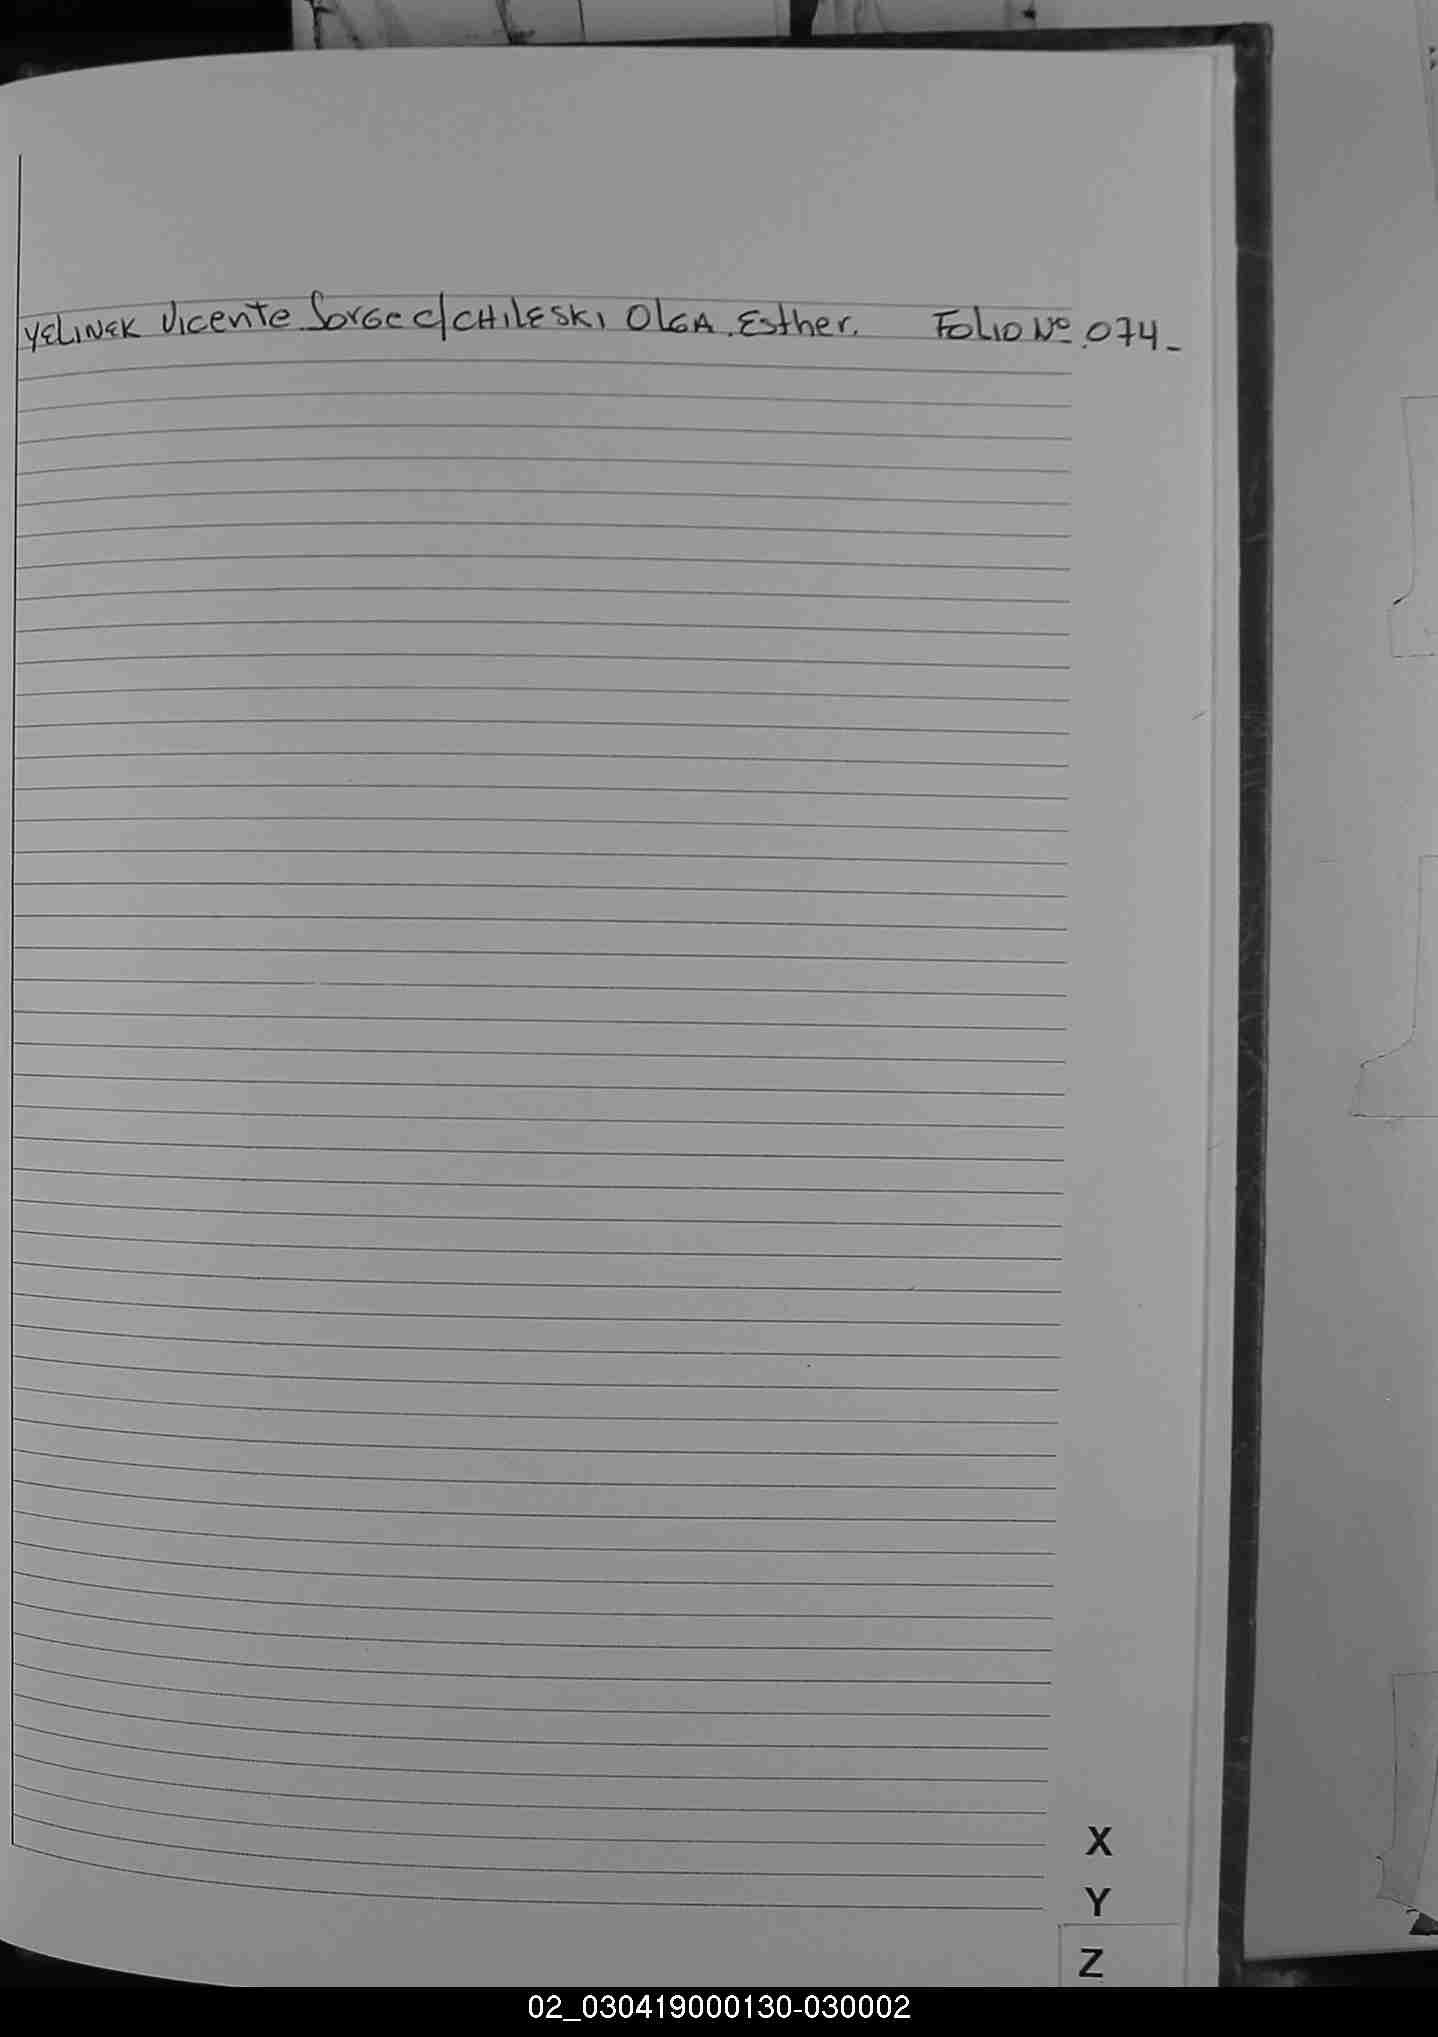 YELINEK Vicente Jorge c/ CHILESKI OLGA Esther. FOLIO Nº 074-
X
Y
Z
02_030419000130-030002